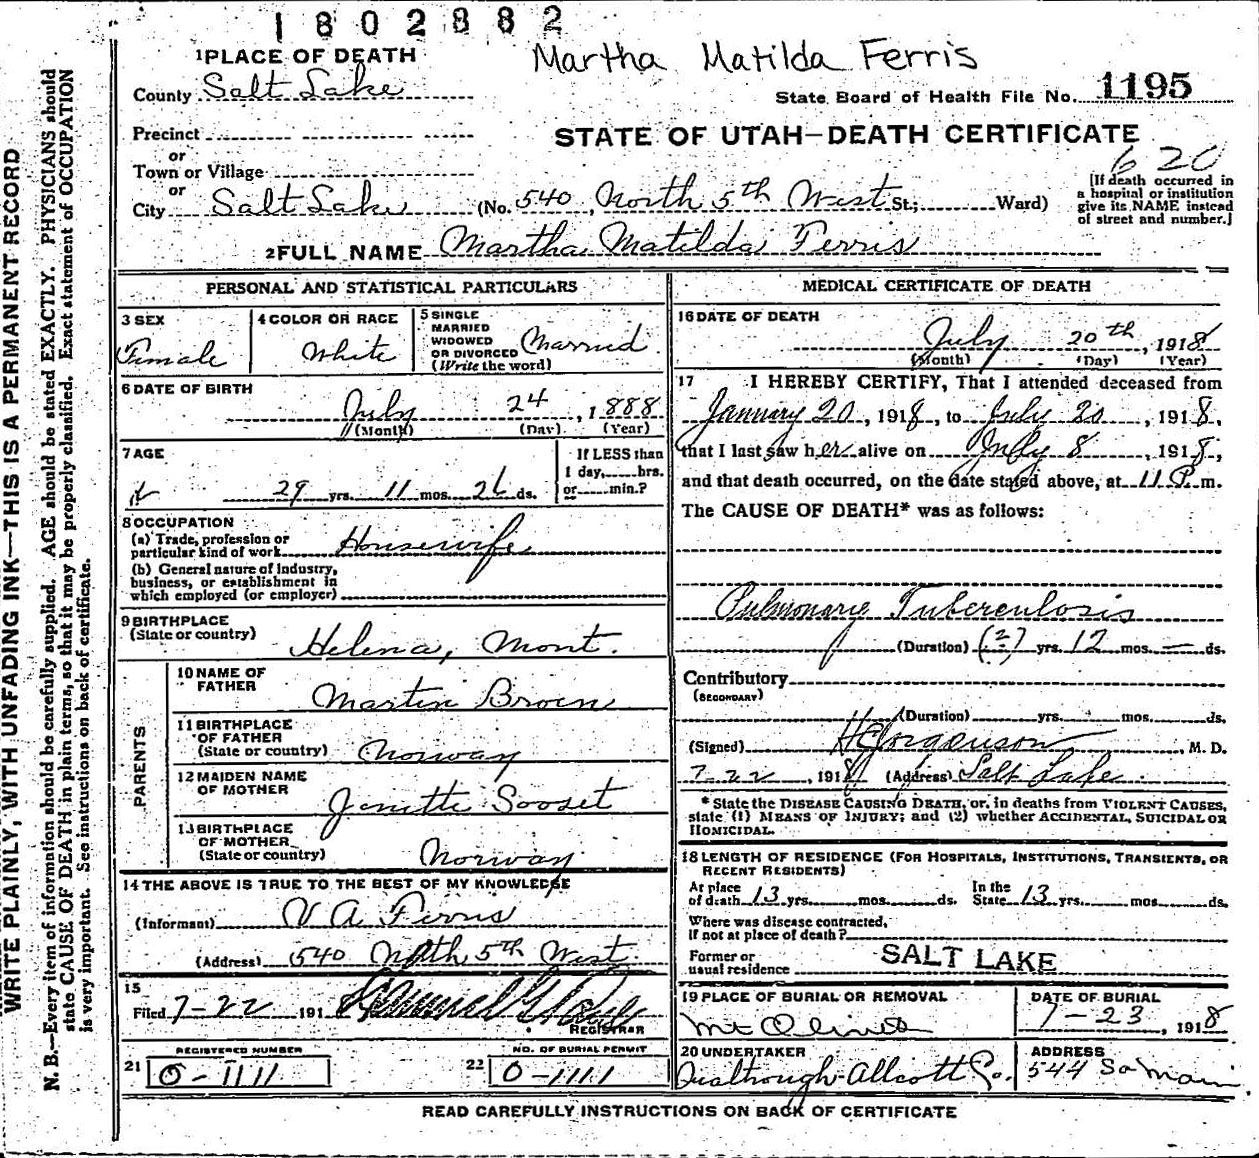 1802882
Martha Matilda Ferris
1 PLACE OF DEATH
County Salt Lake
State Board of Health File No. 1195
Precinct
STATE OF UTAH—DEATH CERTIFICATE
or
Town or Village
620
or
City Salt Lake (No. 540, North 5th West St; Ward)
[If death occurred in
a hospital or institution
give its NAME instead
of street and number.]
2 FULL NAME Martha Matilda Ferris
PERSONAL AND STATISTICAL PARTICULARS
3 SEX
Female
4 COLOR OR RACE
White
5 SINGLE
MARRIED
WIDOWED
OR DIVORCED
(Write the word)
Married
6 DATE OF BIRTH
July 24, 1888
(Month) (Day) (Year)
7 AGE
29 yrs. 11 mos. 26 ds.
If LESS than
1 day, hrs.
or min.?
8 OCCUPATION
(a) Trade, profession or
particular kind of work Housewife
(b) General nature of Industry,
business, or establishment in
which employed (or employer)
9 BIRTHPLACE
(State or country) Helena, Mont.
PARENTS
10 NAME OF
FATHER Martin Broen
11 BIRTHPLACE
OF FATHER
(State or country) Norway
12 MAIDEN NAME
OF MOTHER Janette Sooset
13 BIRTHPLACE
OF MOTHER
(State or country) Norway
14 THE ABOVE IS TRUE TO THE BEST OF MY KNOWLEDGE
(Informant) V A Ferris
(Address) 540 North 5th West
15
Filed 7-22 1918
REGISTRAR
REGISTERED NUMBER
21 0-1111
NO. OF BURIAL PERMIT
22 0-1111
MEDICAL CERTIFICATE OF DEATH
16 DATE OF DEATH
July 20th, 1918
(Month) (Day) (Year)
17 I HEREBY CERTIFY, That I attended deceased from
January 20, 1918, to July 20, 1918,
that I last saw her alive on July 8, 1918,
and that death occurred, on the date stated above, at 11 P. m.
The CAUSE OF DEATH* was as follows:
Pulmonary Tuberculosis
(Duration) (?) yrs. 12 mos. — ds.
Contributory
(SECONDARY)
(Duration) yrs. mos. ds.
(Signed) H C Jorgenson, M. D.
7-22, 1918 (Address) Salt Lake.
* State the DISEASE CAUSING DEATH, or, in deaths from VIOLENT CAUSES,
state (1) MEANS OF INJURY; and (2) whether ACCIDENTAL, SUICIDAL OR
HOMICIDAL.
18 LENGTH OF RESIDENCE (FOR HOSPITALS, INSTITUTIONS, TRANSIENTS, OR
RECENT RESIDENTS)
At place
of death 13 yrs. mos. ds.
In the
State 13 yrs. mos. ds.
Where was disease contracted,
If not at place of death?
Former or
usual residence SALT LAKE
19 PLACE OF BURIAL OR REMOVAL
Mt Olivet
DATE OF BURIAL
7-23, 1918
20 UNDERTAKER
Allcott Co.
ADDRESS
544 So Main
READ CAREFULLY INSTRUCTIONS ON BACK OF CERTIFICATE
WRITE PLAINLY, WITH UNFADING INK—THIS IS A PERMANENT RECORD
N. B.—Every item of information should be carefully supplied. AGE should be stated EXACTLY. PHYSICIANS should
state CAUSE OF DEATH in plain terms, so that it may be properly classified. Exact statement of OCCUPATION
is very important. See instructions on back of certificate.